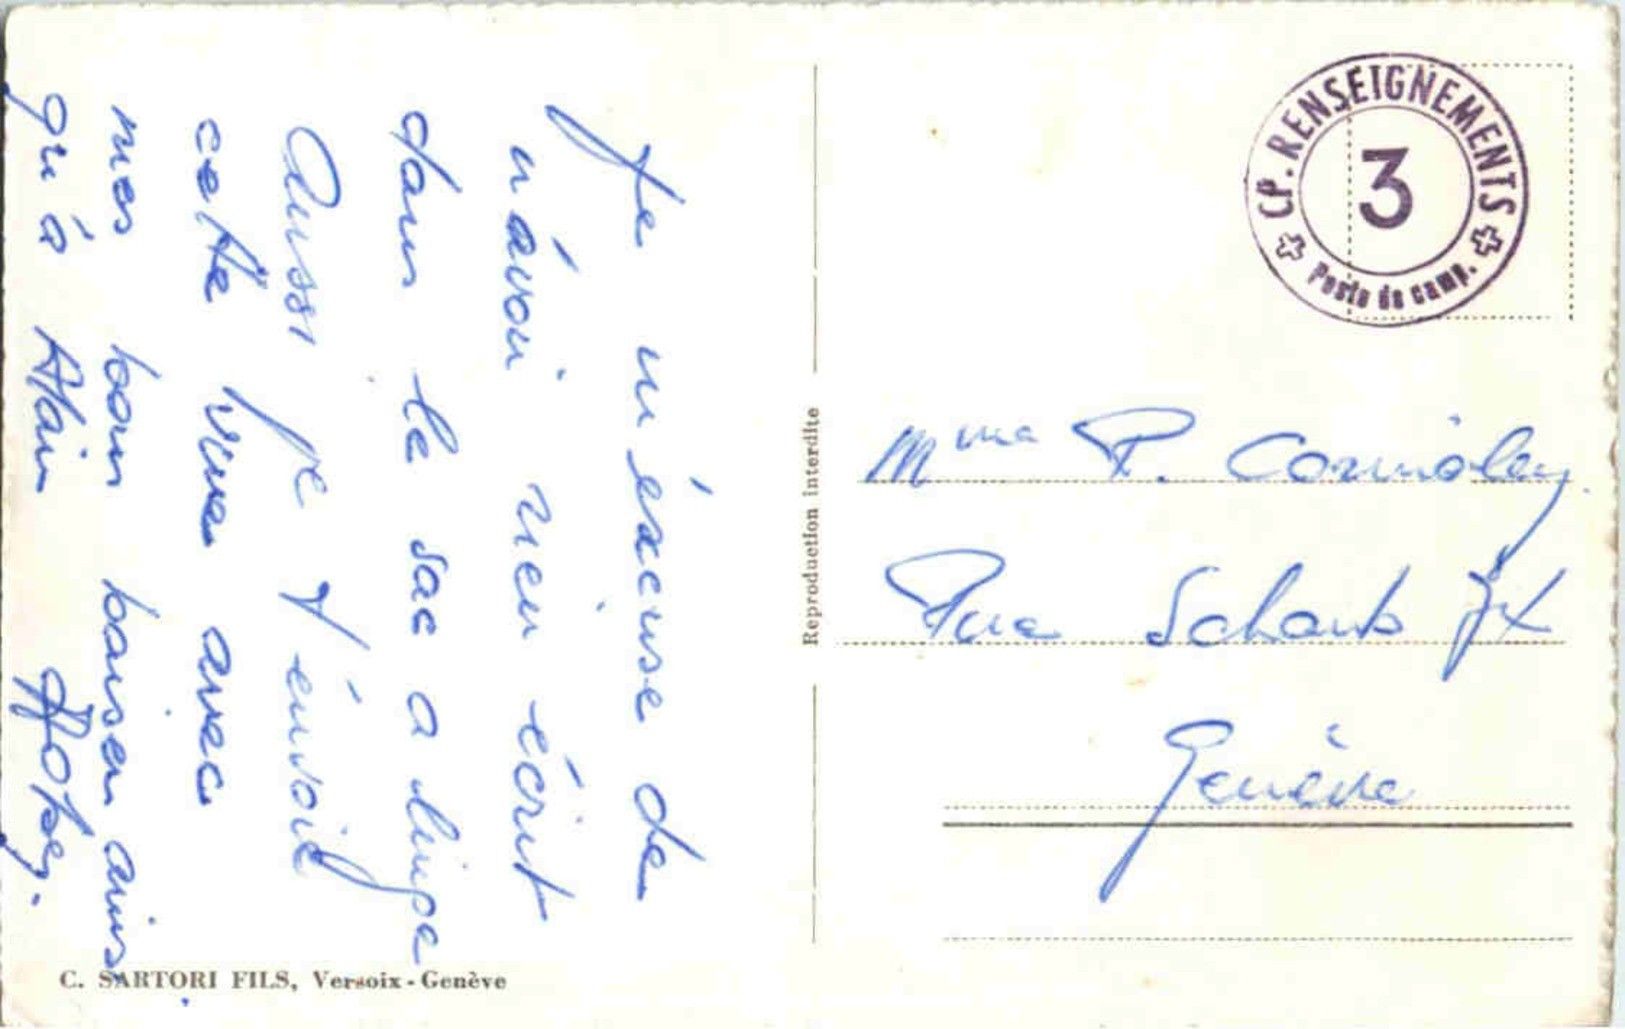 Je m'éxcuse de
n'avoir rien écrit
dans le sac a linge
Aussi je t'envoie
cette vue avec
mes bons baisers ainsi
qu'à Alain
CP. RENSEIGNEMENTS
3
Poste de camp.
Mme P. Cormioley
Rue Schaub
Genève
Reproduction interdite
C. SARTORI FILS, Versoix - Genève